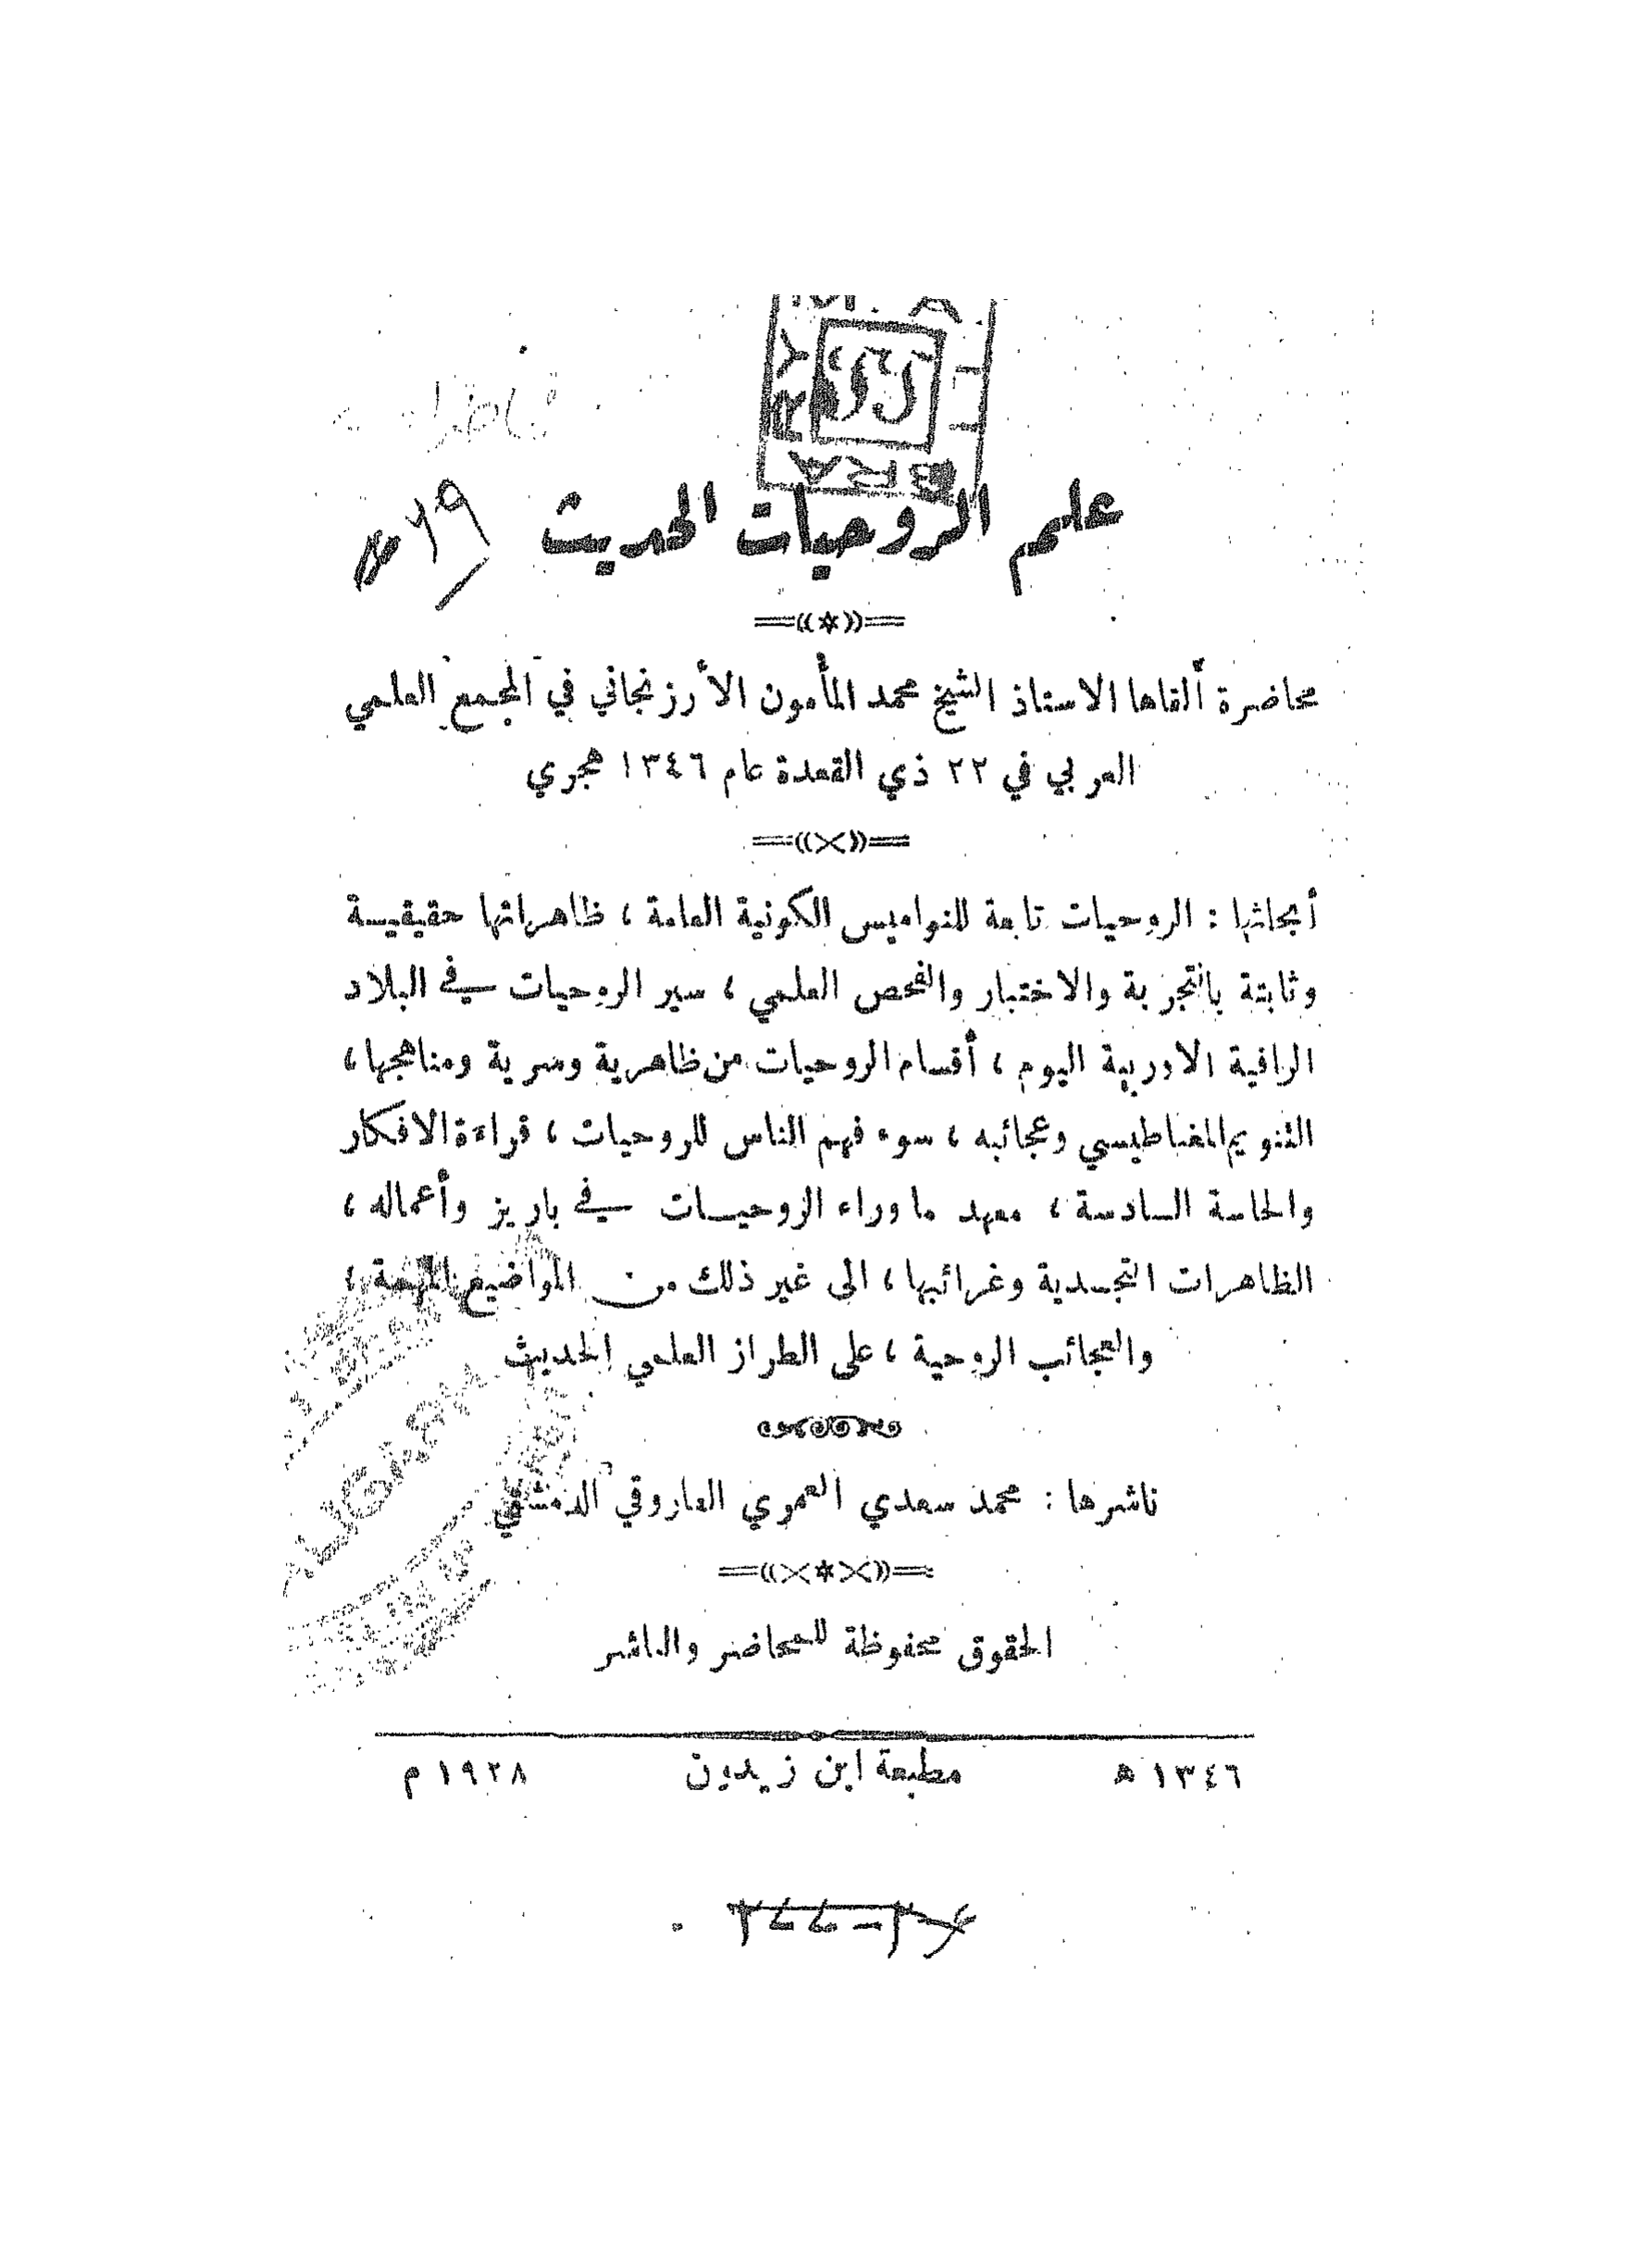 علم الروحيات الحديث
محاضرة ألقاها الاستاذ الشيخ محمد المأمون الأرزنجاني في المجمع العلمي
العربي في ٢٢ ذي القعدة عام ١٣٤٦ هجري
أبحاثها : الروحيات تابعة للنواميس الكونية العامة ، ظاهراتها حقيقية
وثابتة بالتجربة والاختبار والفحص العلمي ، سير الروحيات في البلاد
الراقية الاوربية اليوم ، أقسام الروحيات من ظاهرية وسرية ومناهجها ،
التنويم المغناطيسي وعجائبه ، سوء فهم الناس للروحيات ، قراءة الافكار
والحاسة السادسة ، معهد ما وراء الروحيات في باريز وأعماله ،
الظاهرات التجسدية وغرائبها ، الى غير ذلك من المواضيع المهمة ،
والعجائب الروحية ، على الطراز العلمي الحديث
ALIGARH
ناشرها : محمد سعدي العمري الفاروقي الدمشقي
الحقوق محفوظة للمحاضر والناشر
١٣٤٦ ه مطبعة ابن زيدون ١٩٢٨ م